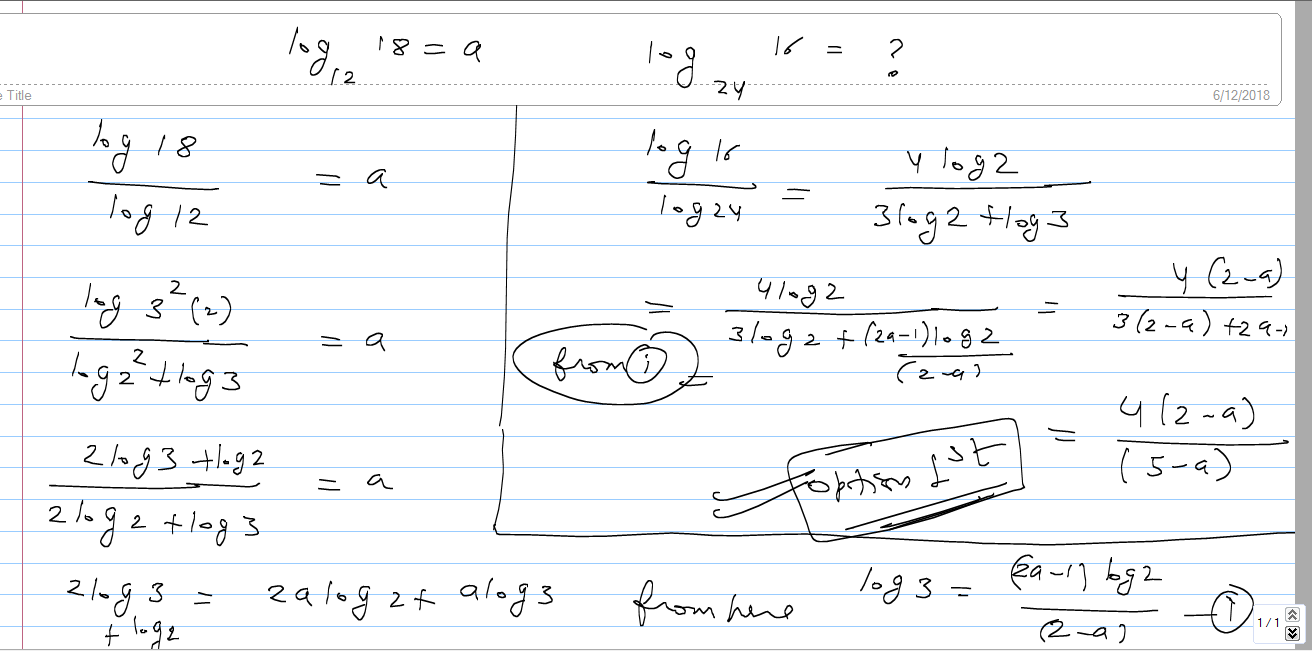 log₁₂ 18 = a log₂₄ 16 = ?
e Title 6/12/2018
log 18 / log 12 = a
log 3²(2) / log 2² + log 3 = a
2 log 3 + log 2 / 2 log 2 + log 3 = a
2 log 3 + log 2 = 2a log 2 + a log 3 from here log 3 = (2a-1) log 2 / (2-a) — (i)
log 16 / log 24 = 4 log 2 / 3 log 2 + log 3
= 4 log 2 / 3 log 2 + (2a-1) log 2 / (2-a) = 4 (2-a) / 3(2-a) + 2a-1
from (i) =
= 4 (2-a) / (5-a)
option 1st
1 / 1